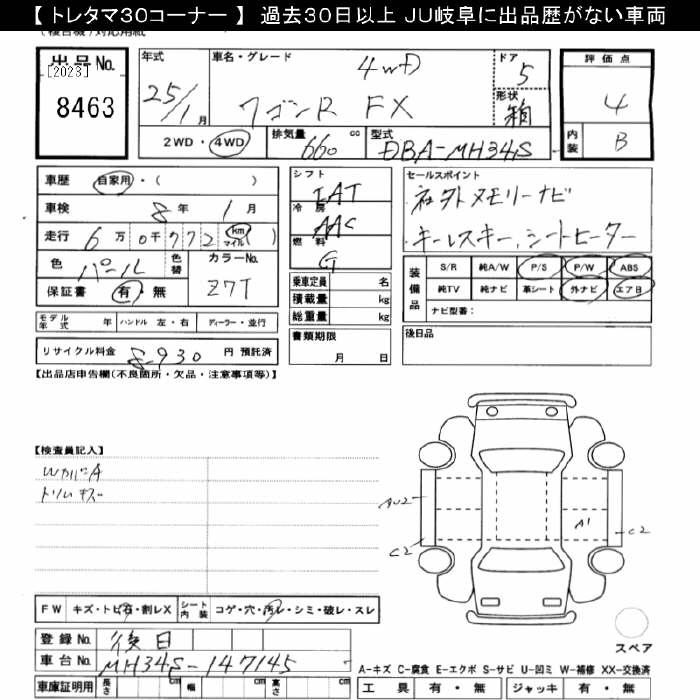 【 トレタマ30コーナー 】 過去30日以上 JU岐阜に出品歴がない車両
出品No.
[2023]
8463
年式 25/1月
車名・グレード 4WD
ワゴンR FX
ドア 5
形状 箱
評価点 4
内装 B
2WD・4WD 排気量 660 cc 型式 DBA-MH34S
車歴 自家用・( )
車検 8年 1月
走行 6万0千772 km マイル ( )
色 パール 色替 カラーNo. Z7T
保証書 有・無
シフト IAT
冷房 AAC
燃料 G
乗車定員 名
積載量 kg
総重量 kg
書類期限 月 日
セールスポイント
社外メモリーナビ
キーレスキー、シートヒーター
装備品 S/R 純A/W P/S P/W ABS
純TV 純ナビ 革シート 外ナビ エアB
ナビ型番:
後日品
モデル年式 年 ハンドル 左・右 ディーラー・並行
リサイクル料金 8930 円 預託済
【出品店申告欄(不良箇所・欠品・注意事項等)】
【検査員記入】
WカバーA
トリム キズ
AU2
C2
A1
C2
FW キズ・トビ石・割レX シート内装 コゲ・穴・汚レ・シミ・破レ・スレ
スペア
登録No. 後日
車台No. MH34S-147145
A-キズ C-腐食 E-エクボ S-サビ U-凹ミ W-補修 XX-交換済
車庫証明用 長さ cm 幅 cm 高さ cm 工具 有・無 ジャッキ 有・無